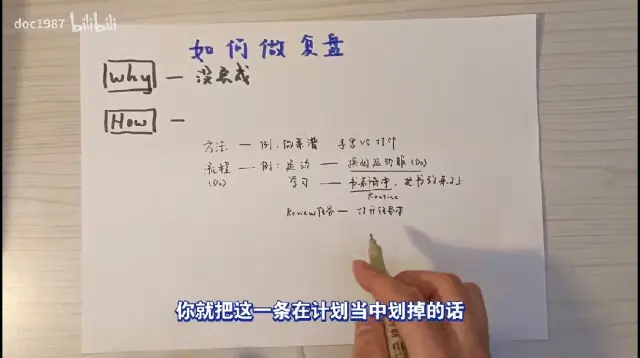 doc1987 bilibili
如何做复盘
Why — 没完成
How —
方法 — 例:向菜谱 手写VS打印
流程 — 例:运动 — 换好运动服(Do)
(Do) 学习 — 书桌清空,把书放桌子上
Routine
Review任务 — 打开任务本
你就把这一条在计划当中划掉的话